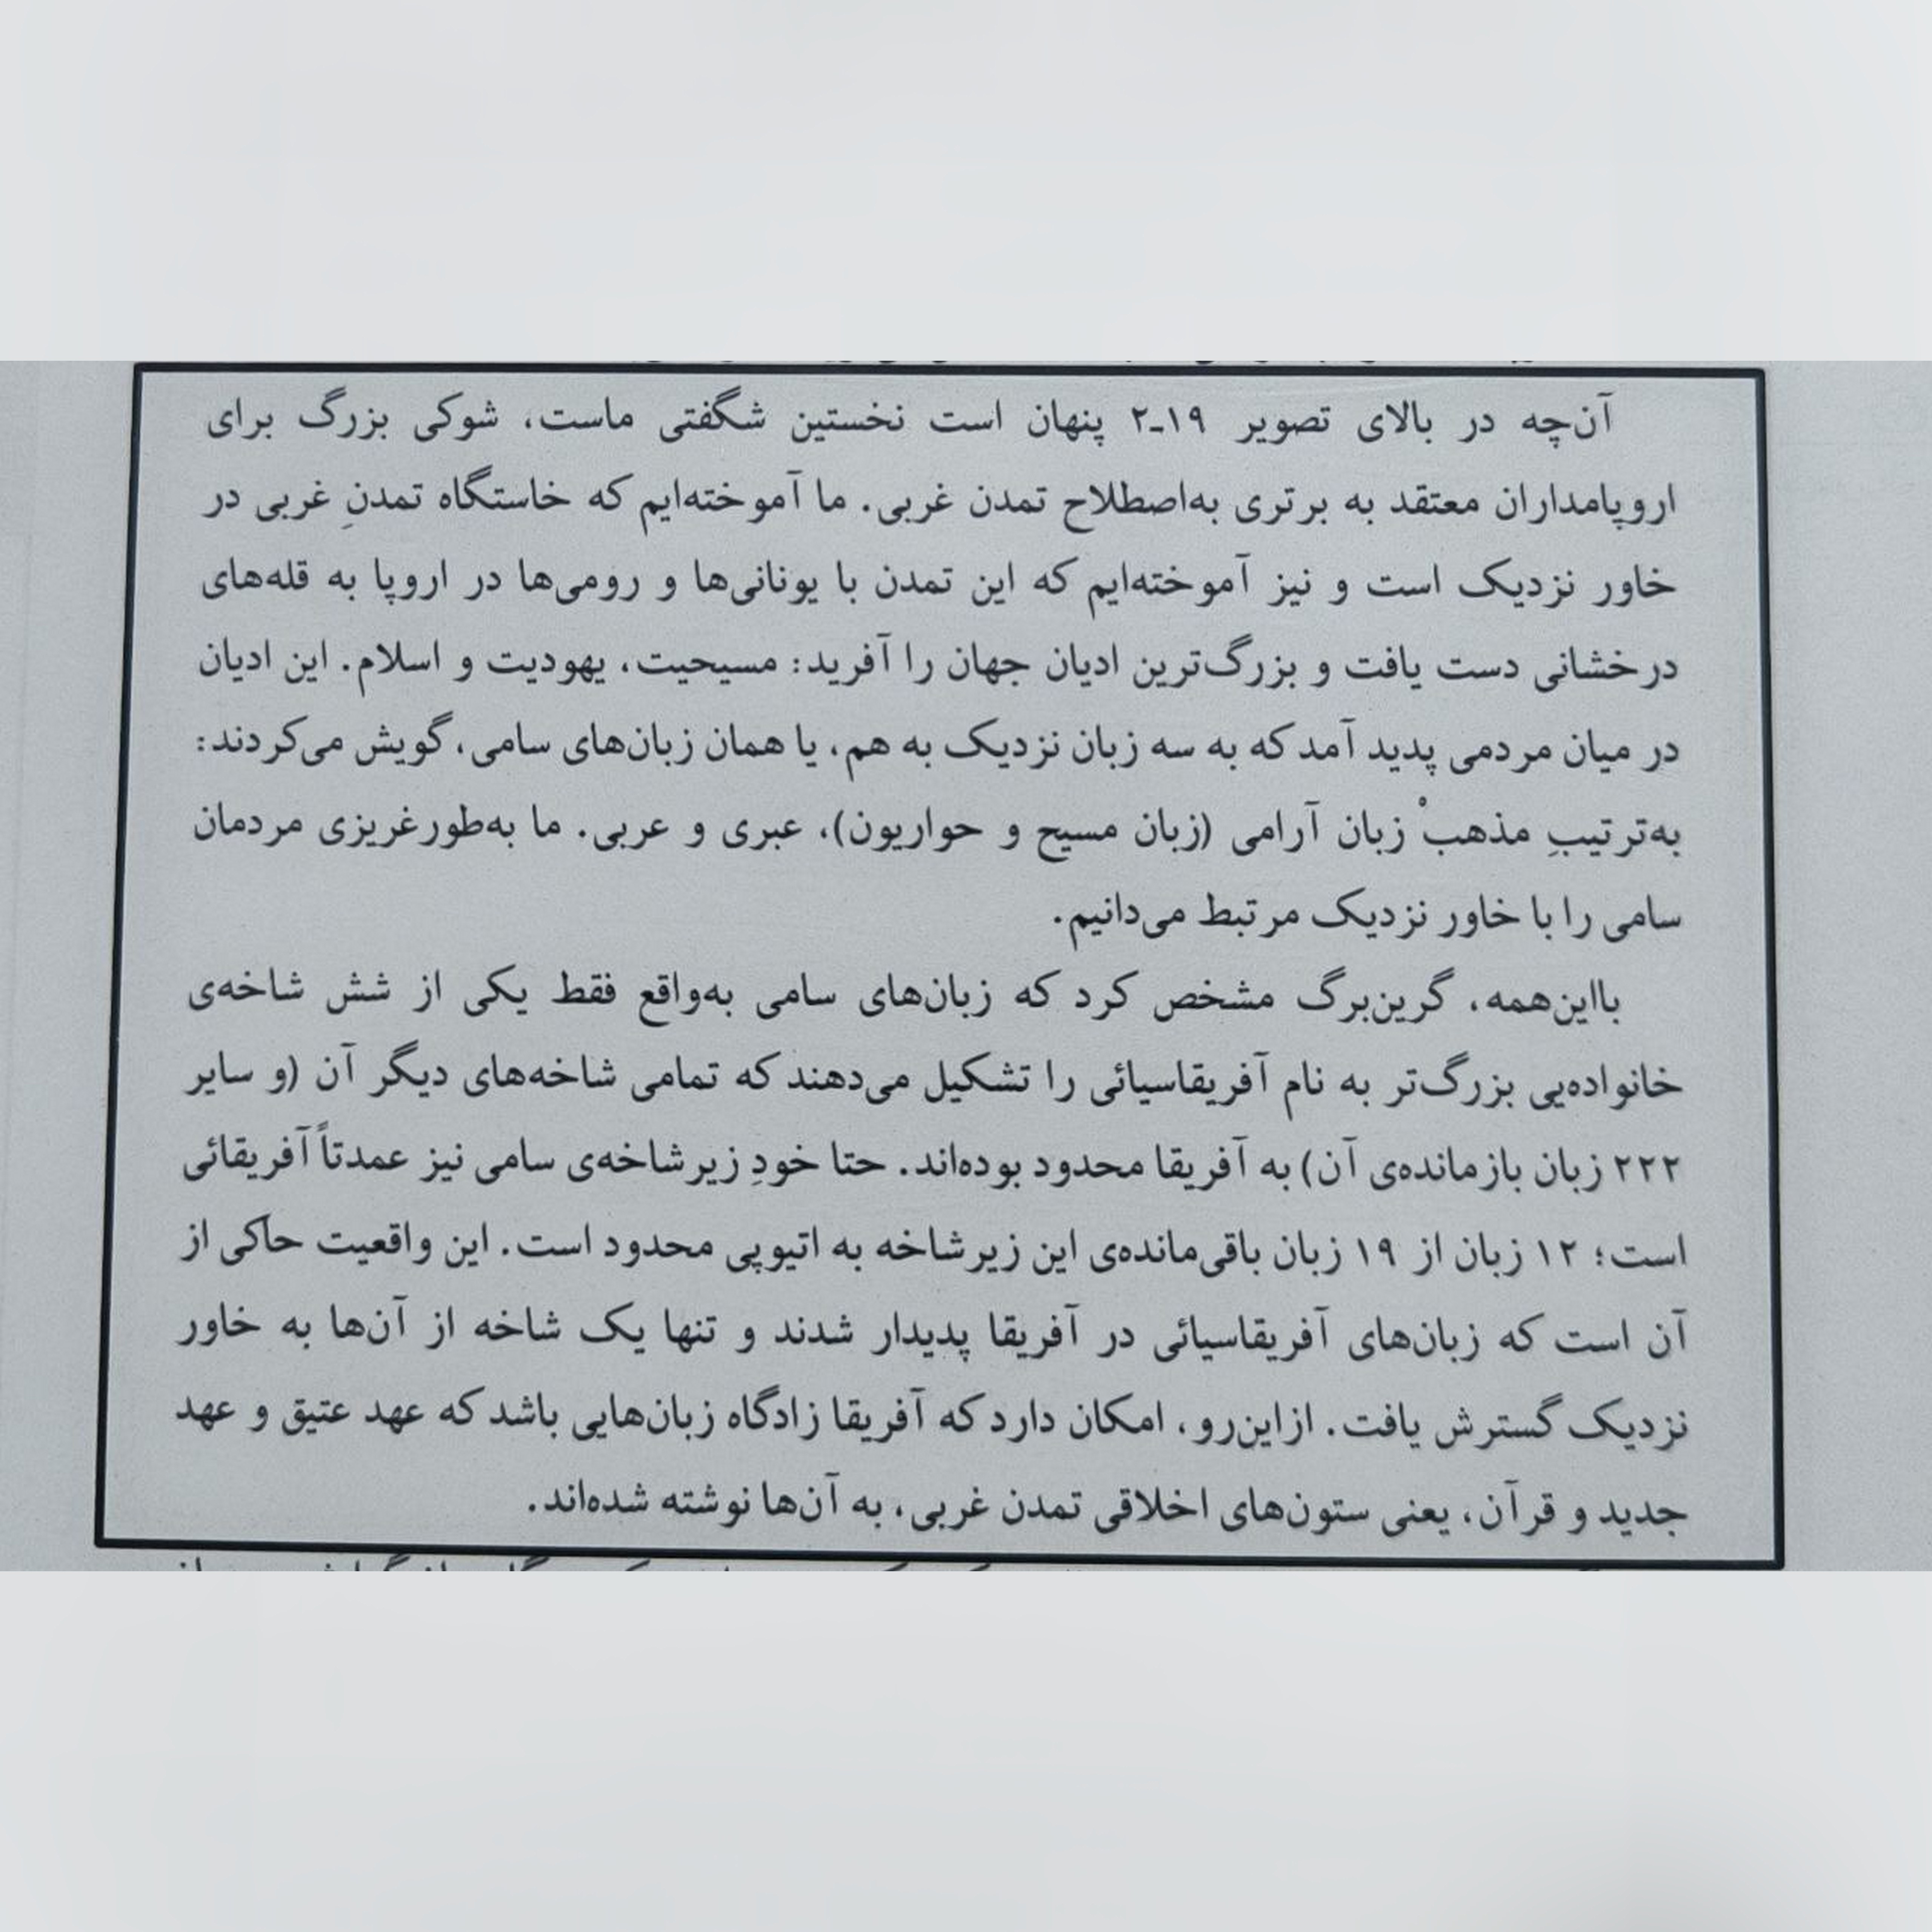 آن‌چه در بالای تصویر ۱۹ـ۲ پنهان است نخستین شگفتی ماست، شوکی بزرگ برای
اروپامداران معتقد به برتری به‌اصطلاح تمدن غربی. ما آموخته‌ایم که خاستگاه تمدنِ غربی در
خاور نزدیک است و نیز آموخته‌ایم که این تمدن با یونانی‌ها و رومی‌ها در اروپا به قله‌های
درخشانی دست یافت و بزرگ‌ترین ادیان جهان را آفرید: مسیحیت، یهودیت و اسلام. این ادیان
در میان مردمی پدید آمد که به سه زبان نزدیک به هم، یا همان زبان‌های سامی، گویش می‌کردند:
به‌ترتیبِ مذهبْ زبان آرامی (زبان مسیح و حواریون)، عبری و عربی. ما به‌طورغریزی مردمان
سامی را با خاور نزدیک مرتبط می‌دانیم.
بااین‌همه، گرین‌برگ مشخص کرد که زبان‌های سامی به‌واقع فقط یکی از شش شاخه‌ی
خانواده‌یی بزرگ‌تر به نام آفریقاسیائی را تشکیل می‌دهند که تمامی شاخه‌های دیگر آن (و سایر
۲۲۲ زبان بازمانده‌ی آن) به آفریقا محدود بوده‌اند. حتا خودِ زیرشاخه‌ی سامی نیز عمدتاً آفریقائی
است؛ ۱۲ زبان از ۱۹ زبان باقی‌مانده‌ی این زیرشاخه به اتیوپی محدود است. این واقعیت حاکی از
آن است که زبان‌های آفریقاسیائی در آفریقا پدیدار شدند و تنها یک شاخه از آن‌ها به خاور
نزدیک گسترش یافت. ازاین‌رو، امکان دارد که آفریقا زادگاه زبان‌هایی باشد که عهد عتیق و عهد
جدید و قرآن، یعنی ستون‌های اخلاقی تمدن غربی، به آن‌ها نوشته شده‌اند.